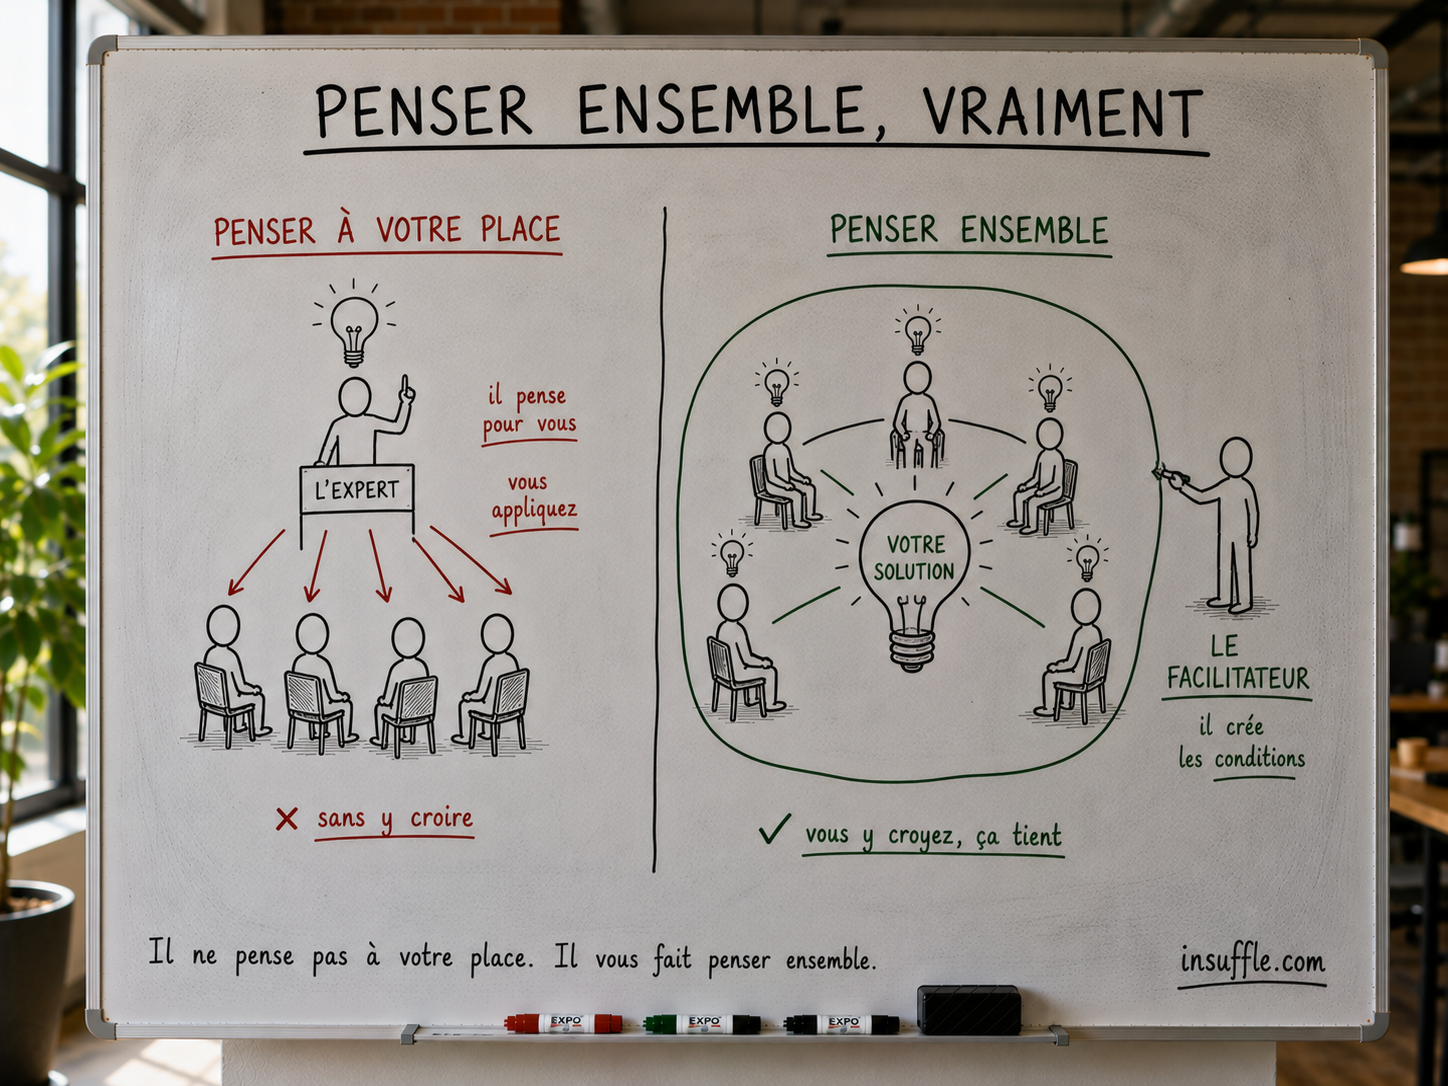 PENSER ENSEMBLE, VRAIMENT
PENSER À VOTRE PLACE
il pense
pour vous
vous
appliquez
L'EXPERT
✗ sans y croire
PENSER ENSEMBLE
VOTRE
SOLUTION
LE
FACILITATEUR
il crée
les conditions
✓ vous y croyez, ça tient
Il ne pense pas à votre place. Il vous fait penser ensemble.
insuffle.com
EXPO
EXPO
EXPO